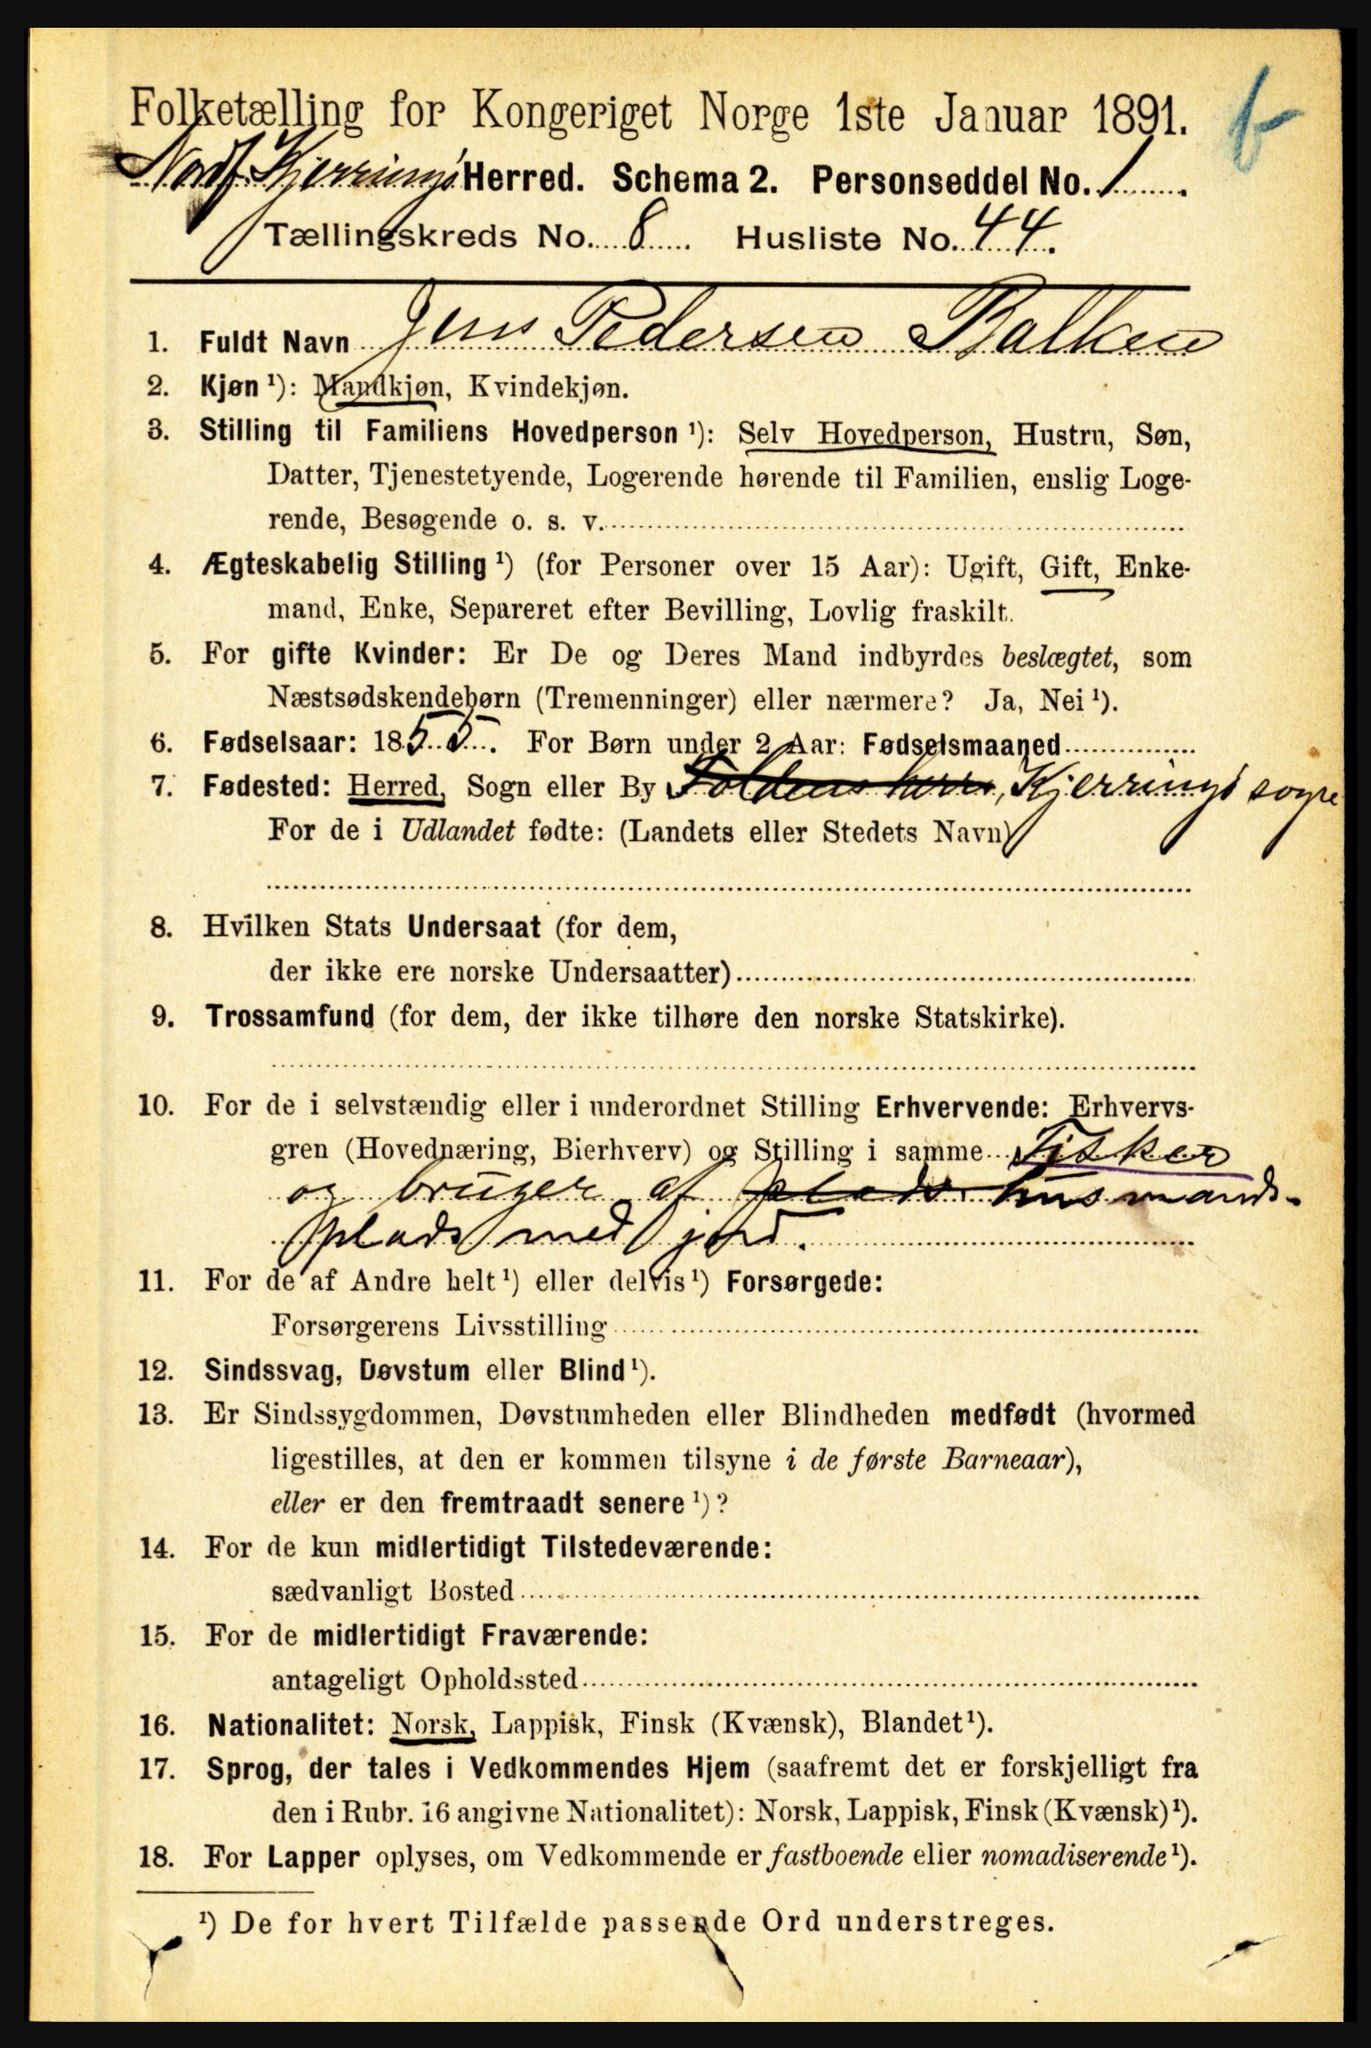 Folketælling for Kongeriget Norge 1ste Januar 1891. b
Nordf. Kjerringø Herred. Schema 2. Personseddel No. 1
Tællingskreds No. 8 Husliste No. 44.
1. Fuldt Navn Jens Pedersen Balken
2. Kjøn ¹): Mandkjøn, Kvindekjøn.
3. Stilling til Familiens Hovedperson ¹): Selv Hovedperson, Hustru, Søn,
Datter, Tjenestetyende, Logerende hørende til Familien, enslig Loge-
rende, Besøgende o. s. v.
4. Ægteskabelig Stilling ¹) (for Personer over 15 Aar): Ugift, Gift, Enke-
mand, Enke, Separeret efter Bevilling, Lovlig fraskilt.
5. For gifte Kvinder: Er De og Deres Mand indbyrdes beslægtet, som
Næstsødskendebørn (Tremenninger) eller nærmere? Ja, Nei ¹).
6. Fødselsaar: 1855. For Børn under 2 Aar: Fødselsmaaned
7. Fødested: Herred, Sogn eller By Foldens herre, Kjerringø sogn
For de i Udlandet fødte: (Landets eller Stedets Navn)
8. Hvilken Stats Undersaat (for dem,
der ikke ere norske Undersaatter)
9. Trossamfund (for dem, der ikke tilhøre den norske Statskirke).
10. For de i selvstændig eller i underordnet Stilling Erhvervende: Erhvervs-
gren (Hovednæring, Bierhverv) og Stilling i samme Fisker
og bruger af plads husmands-
plads med jord.
11. For de af Andre helt ¹) eller delvis ¹) Forsørgede:
Forsørgerens Livsstilling
12. Sindssvag, Døvstum eller Blind ¹).
13. Er Sindssygdommen, Døvstumheden eller Blindheden medfødt (hvormed
ligestilles, at den er kommen tilsyne i de første Barneaar),
eller er den fremtraadt senere ¹)?
14. For de kun midlertidigt Tilstedeværende:
sædvanligt Bosted
15. For de midlertidigt Fraværende:
antageligt Opholdssted
16. Nationalitet: Norsk, Lappisk, Finsk (Kvænsk), Blandet ¹).
17. Sprog, der tales i Vedkommendes Hjem (saafremt det er forskjelligt fra
den i Rubr. 16 angivne Nationalitet): Norsk, Lappisk, Finsk (Kvænsk) ¹).
18. For Lapper oplyses, om Vedkommende er fastboende eller nomadiserende ¹).
¹) De for hvert Tilfælde passende Ord understreges.